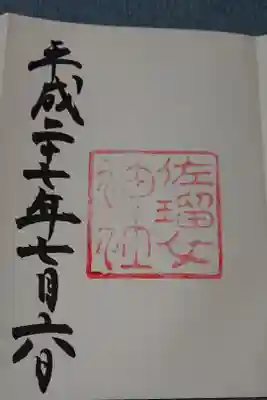 佐瑠女
神社
平成二十七年七月六日